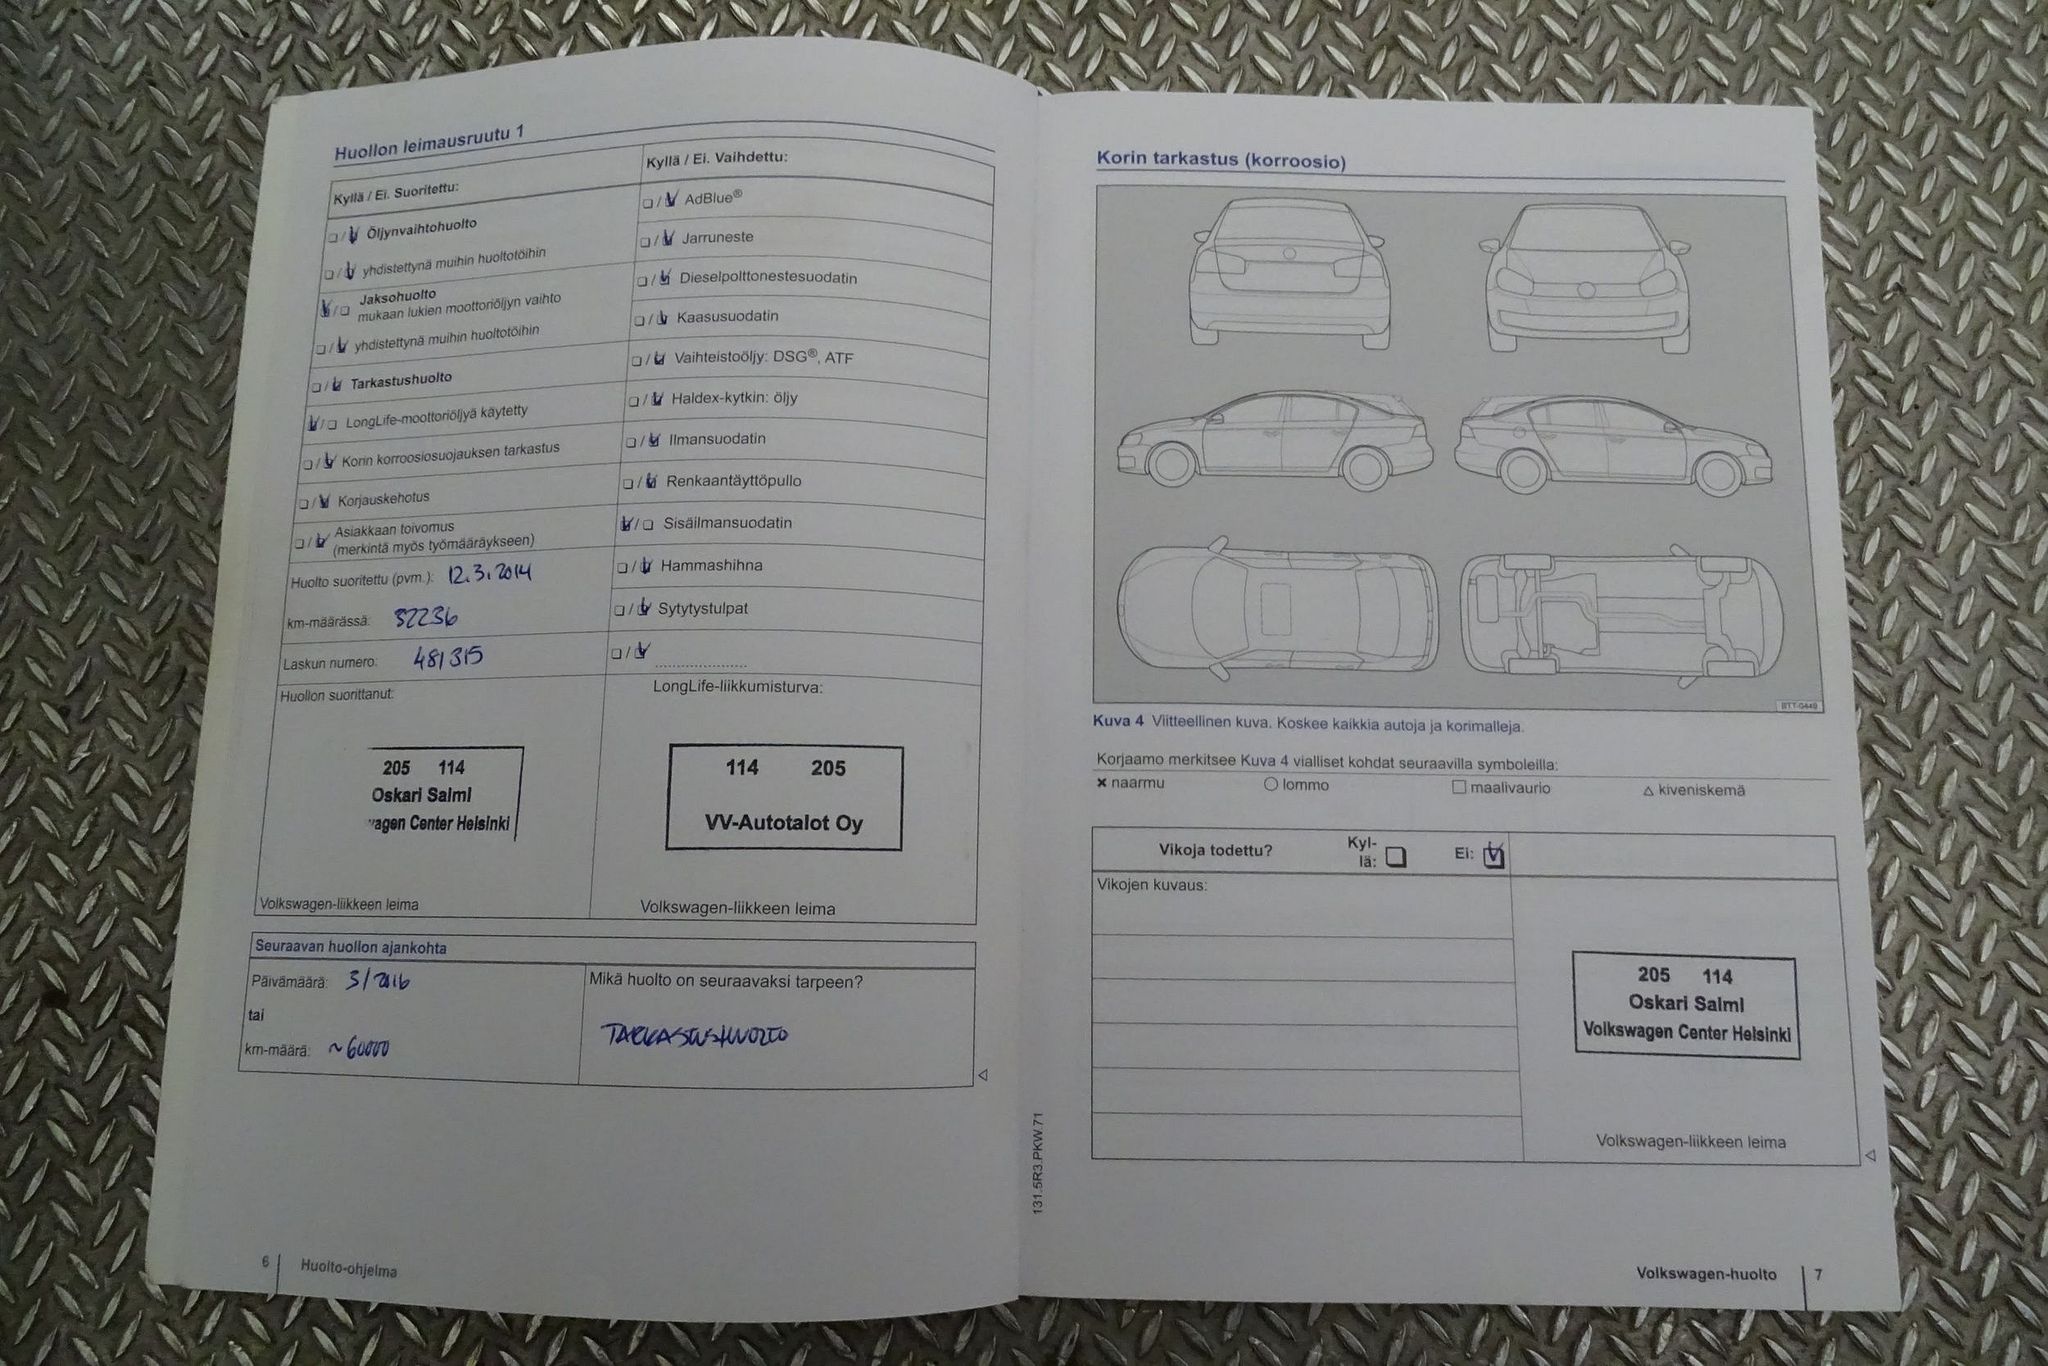 Huollon leimausruutu 1
Kyllä / Ei. Suoritettu:
Öljynvaihtohuolto
yhdistettynä muihin huoltotöihin
Jaksohuolto
mukaan lukien moottoriöljyn vaihto
yhdistettynä muihin huoltotöihin
Tarkastushuolto
LongLife-moottoriöljyä käytetty
Korin korroosiosuojauksen tarkastus
Korjauskehotus
Asiakkaan toivomus
(merkintä myös työmääräykseen)
Huolto suoritettu (pvm.): 12.3.2014
km-määrässä: 32236
Laskun numero: 481315
Kyllä / Ei. Vaihdettu:
AdBlue®
Jarruneste
Dieselpolttonestesuodatin
Kaasusuodatin
Vaihteistoöljy: DSG®, ATF
Haldex-kytkin: öljy
Ilmansuodatin
Renkaantäyttöpullo
Sisäilmansuodatin
Hammashihna
Sytytystulpat
Huollon suorittanut:
205 114
Oskari Salmi
agen Center Helsinki
Volkswagen-liikkeen leima
LongLife-liikkumisturva:
114 205
VV-Autotalot Oy
Volkswagen-liikkeen leima
Seuraavan huollon ajankohta
Päivämäärä: 3/2016
tai
km-määrä: ~60000
Mikä huolto on seuraavaksi tarpeen?
TARKASTUSHUOLTO
6 Huolto-ohjelma
131.5R3.PKW.71
Korin tarkastus (korroosio)
BTT-0449
Kuva 4 Viitteellinen kuva. Koskee kaikkia autoja ja korimalleja.
Korjaamo merkitsee Kuva 4 vialliset kohdat seuraavilla symboleilla:
naarmu lommo maalivaurio kiveniskemä
Vikoja todettu? Kyl-
lä: Ei:
Vikojen kuvaus:
205 114
Oskari Salmi
Volkswagen Center Helsinki
Volkswagen-liikkeen leima
Volkswagen-huolto 7